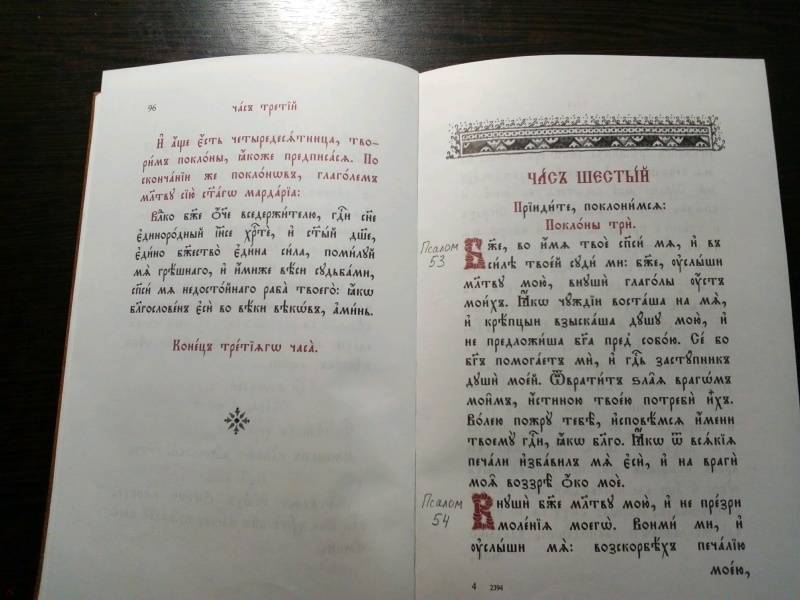 96
ча́съ тре́тїй
И҆ а҆́ще є҆́сть четыредесѧ́тница, тво-
ри́мъ покло́ны, ꙗ҆́коже предписа́сѧ. По
сконча́нїи же покло́нѡвъ, глаго́лемъ
мл҃тву сїю̀ ст҃а́гѡ мардарїа:
Влⷣко бж҃е ѻ҆́ч҃е вседержи́телю, гдⷭ҇и сн҃е
є҆диноро́дный і҆и҃се хрⷭ҇тѐ, и҆ ст҃ы́й дш҃е,
є҆ди́но бжⷭ҇тво̀ є҆ди́на си́ла, поми́луй
мѧ̀ грѣ́шнаго, и҆ и҆́миже вѣ́си судьба́ми,
спⷭ҇и́ мѧ недосто́йнаго раба̀ твоего̀: ꙗ҆́кѡ
блгⷭ҇ове́нъ є҆сѝ во вѣ́ки вѣкѡ́въ, а҆ми́нь.
Коне́цъ тре́тїѧгѡ часа̀.
ЧА́СЪ ШЕСТЫ́Й
Прїиди́те, поклони́мсѧ:
Покло́ны трѝ.
Псалом
53
Бж҃е, во и҆́мѧ твоѐ спⷭ҇и́ мѧ, и҆ въ
си́лѣ твое́й суди́ ми: бж҃е, ᲂу҆слы́ши
мл҃тву мою̀, внушѝ глаго́лы ᲂу҆́стъ
мои́хъ. Ꙗ҆́кѡ чу́ждїи воста́ша на мѧ̀,
и҆ крѣ́пцыи взыска́ша ду́шу мою̀, и҆
не предложи́ша бг҃а пред̾ собо́ю. Се́ бо
бг҃ъ помога́етъ мѝ, и҆ гдⷭ҇ь засту́пникъ
душѝ мое́й. Ѿврати́тъ ѕла̑ѧ врагѡ́мъ
мои̑мъ, и҆́стиною твое́ю потребѝ и҆̀хъ.
Во́лею пожру̀ тебѣ̀, и҆сповѣ́мсѧ и҆́мени
твоему̀ гдⷭ҇и, ꙗ҆́кѡ бл҃го. Ꙗ҆́кѡ ѿ всѧ́кїѧ
печа́ли и҆зба́вилъ мѧ̀ є҆сѝ, и҆ на врагѝ
моѧ̀ воззрѣ̀ ѻ҆́ко моѐ.
Псалом
54
Внушѝ бж҃е мл҃тву мою̀, и҆ не пре́зри
моле́нїѧ моегѡ̀. Вонми́ ми, и҆
ᲂу҆слы́ши мѧ̀: возскорбѣ́хъ печа́лїю
мое́ю,
4 2394